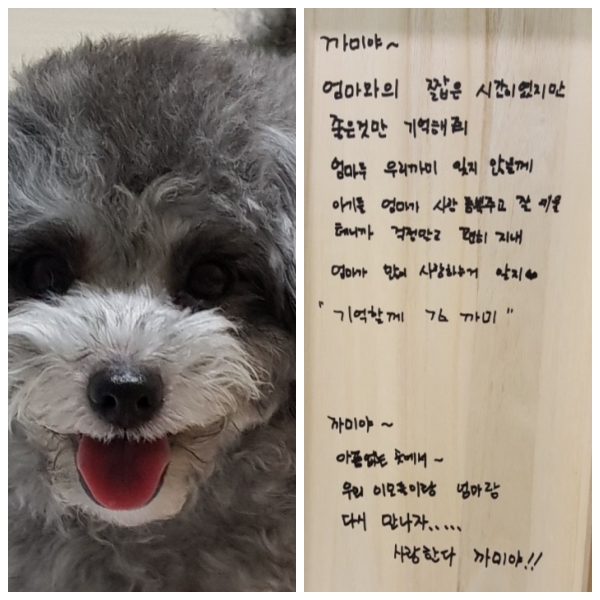 까미야~
엄마와의 짧잡은 시간이였지만
좋은것만 기억해줘
엄마두 우리까미 잊지 않을께
아기들 엄마가 사랑 듬뿍주고 잘 키울
테니까 걱정말고 편히 지내
엄마가 많이 사랑하는거 알지♥
"기억할께 김 까미"
까미야~
아픔없는 곳에서~
우리 이모들이랑 엄마랑
다시 만나자.....
사랑한다 까미야!!